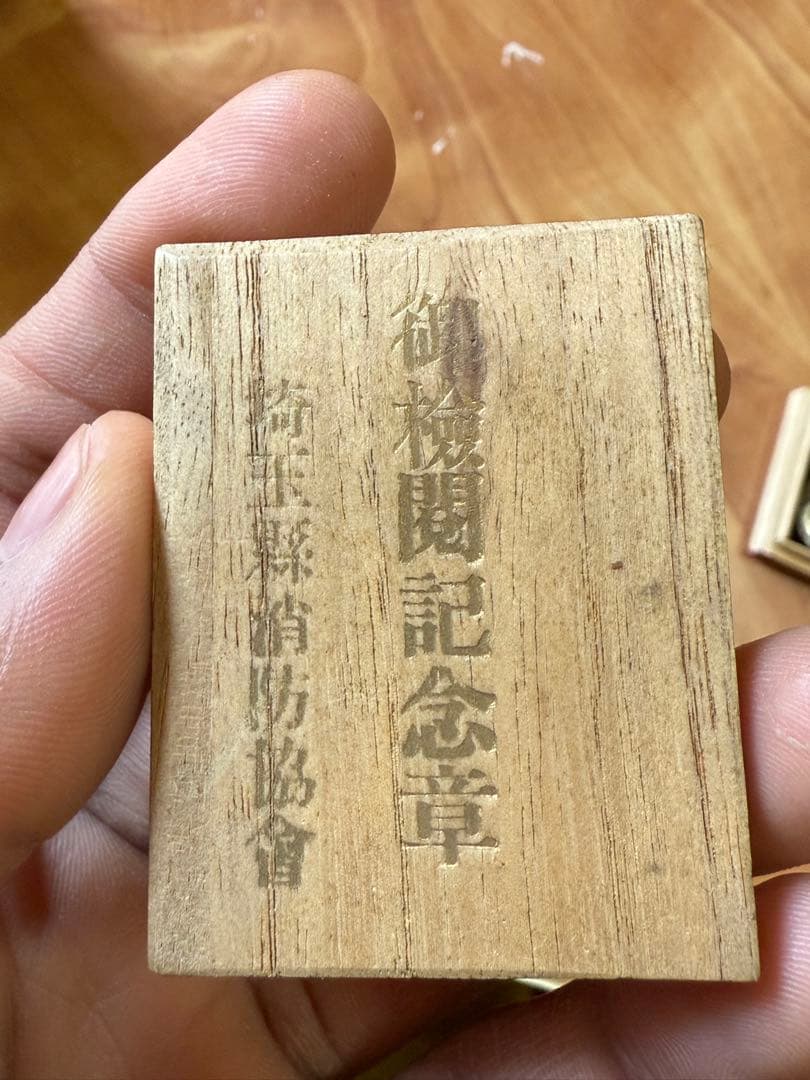 御檢閲記念章
埼玉縣消防協會